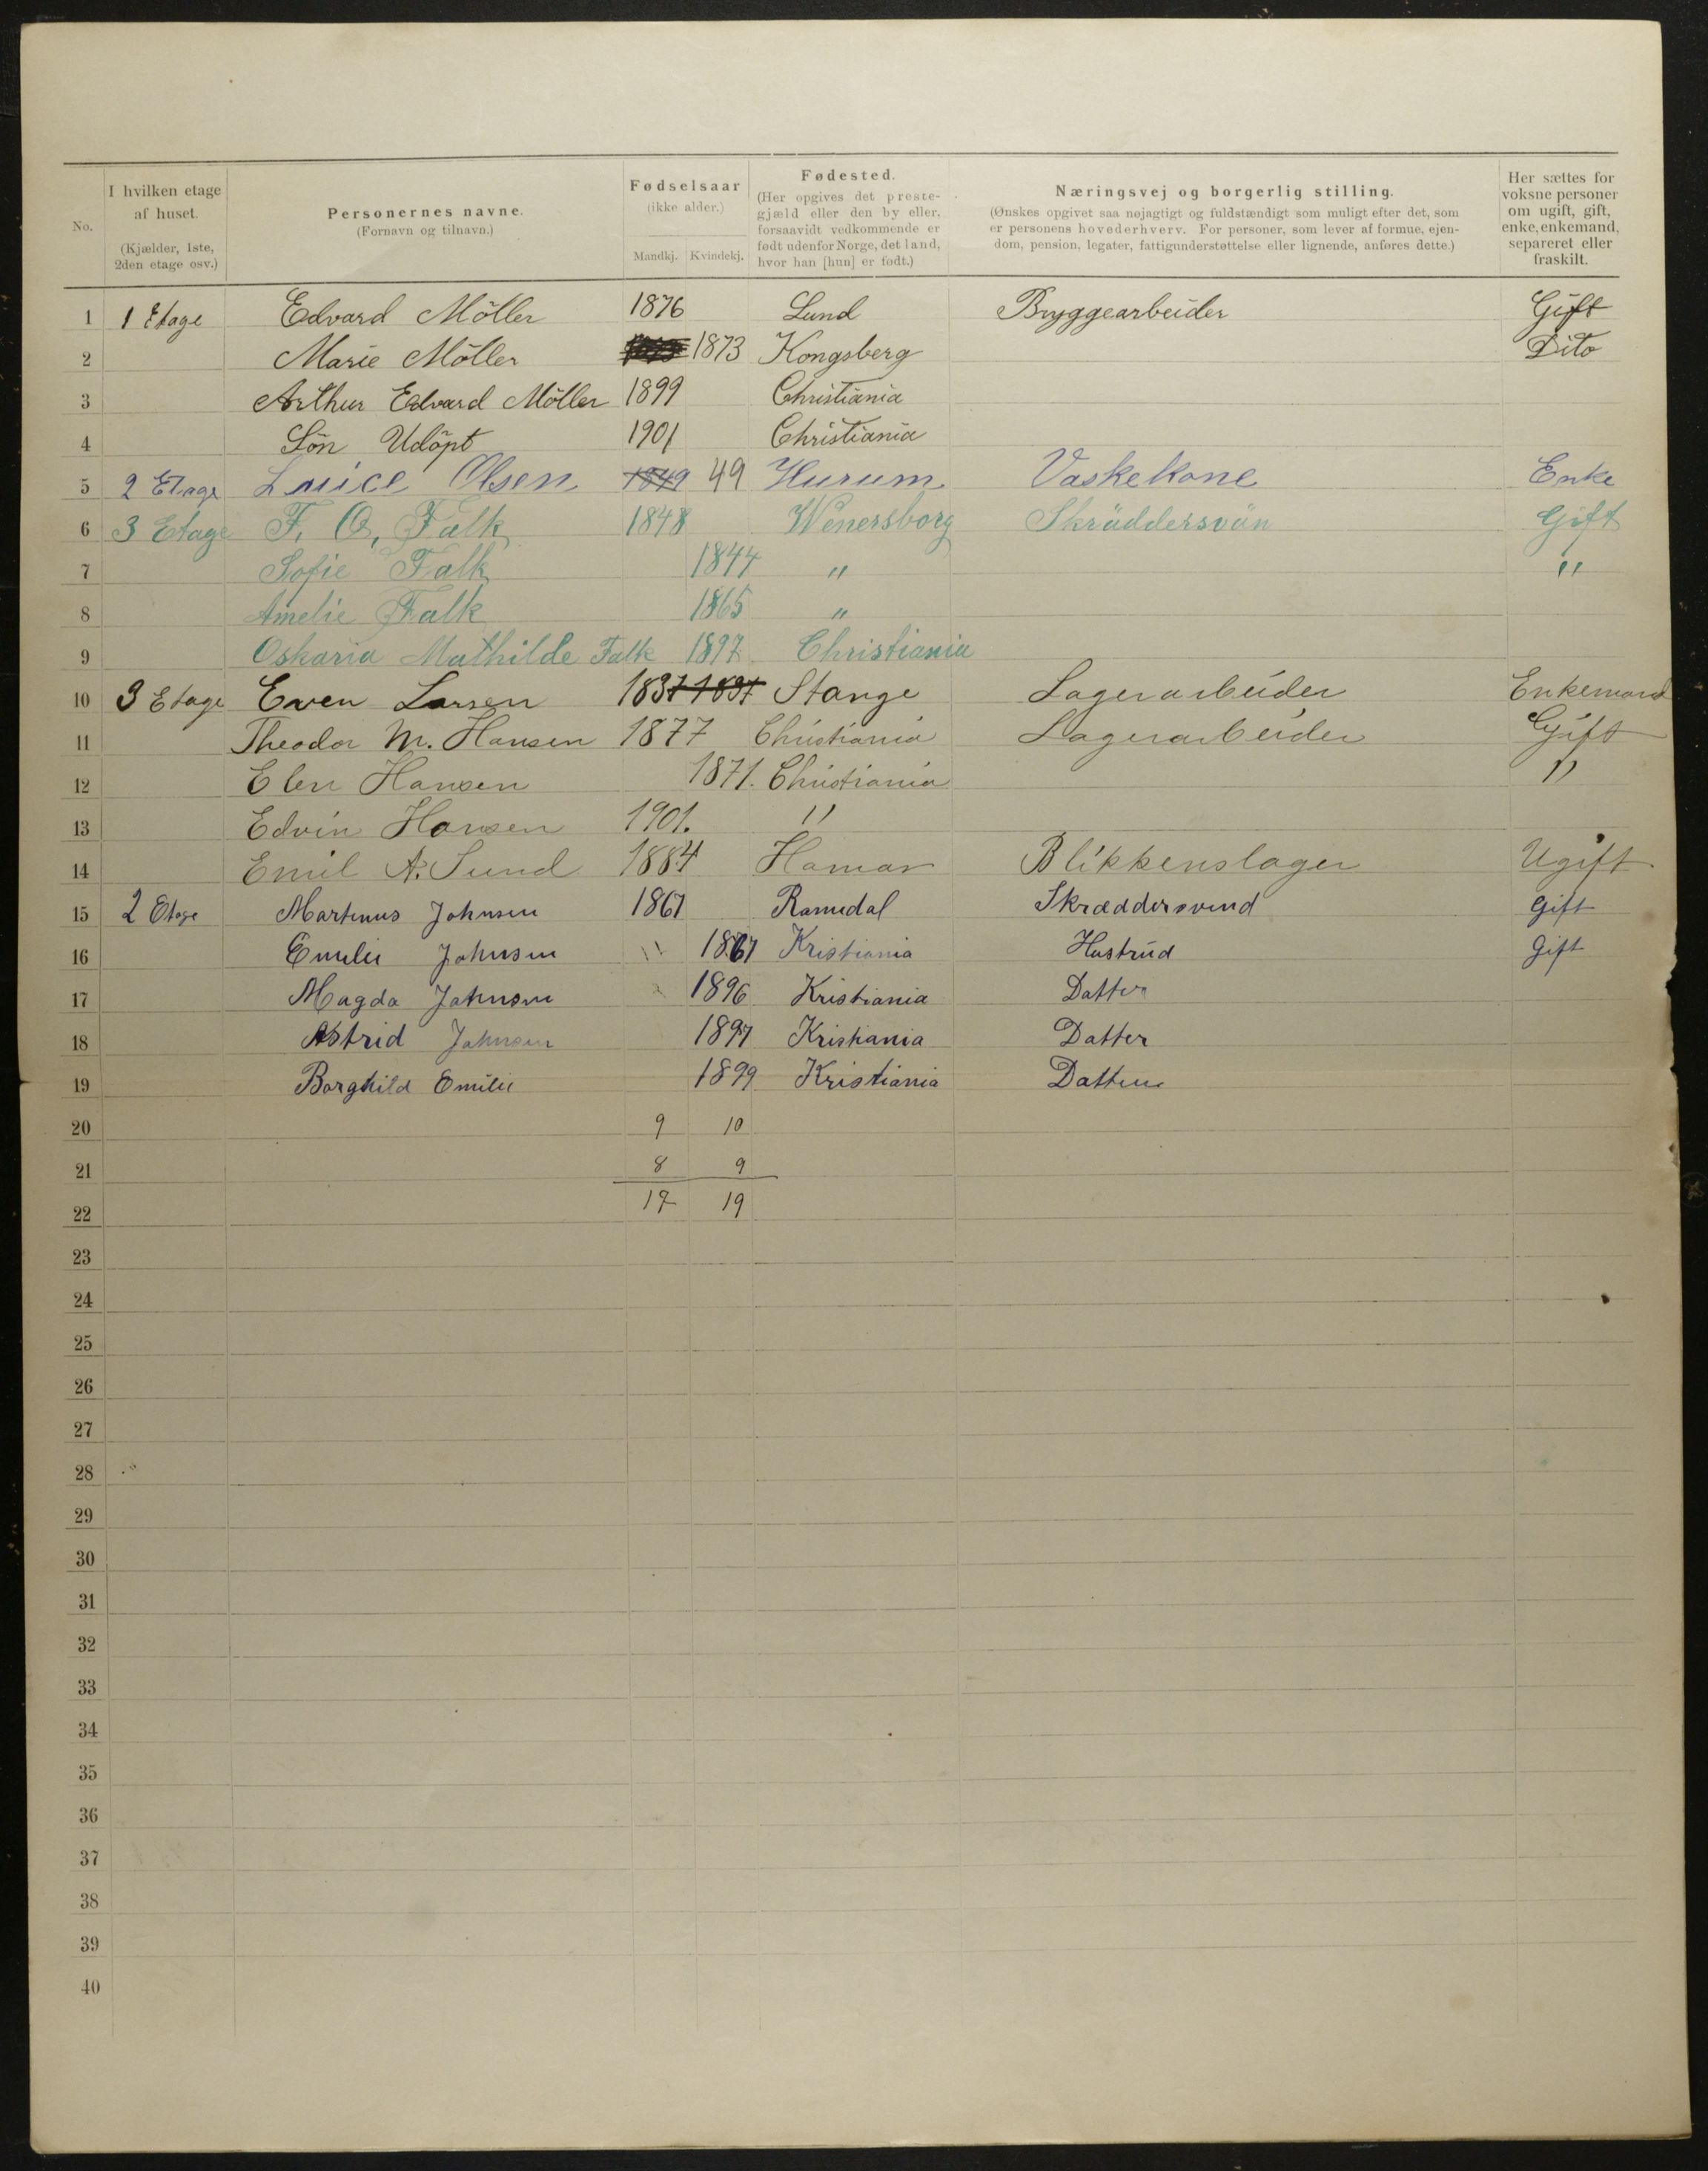 No. | I hvilken etage af huset. (Kjælder, 1ste, 2den etage osv.) | Personernes navne. (Fornavn og tilnavn.) | Fødselsaar (ikke alder.) Mandkj. Kvindekj. | Fødested. (Her opgives det prestegjæld eller den by eller, forsaavidt vedkommende er født udenfor Norge, det land, hvor han [hun] er født.) | Næringsvej og borgerlig stilling. (Ønskes opgivet saa nøjagtigt og fuldstændigt som muligt efter det, som er personens hovederhverv. For personer, som lever af formue, ejendom, pension, legater, fattigunderstøttelse eller lignende, anføres dette.) | Her sættes for voksne personer om ugift, gift, enke, enkemand, separeret eller fraskilt.
1 1 Etage Edvard Möller 1876 Lund Bryggearbeider Gift
2 Marie Möller 1873 Kongsberg Dito
3 Arthur Edvard Möller 1899 Christiania
4 Sön Udöpt 1901 Christiania
5 2 Etage Louice Olsen 1849 49 Hurum Vaskekone Enke
6 3 Etage F. O. Falk 1848 Wenersborg Skräddersvän Gift
7 Sofie Falk 1844 " "
8 Amelie Falk 1865 "
9 Oskaria Mathilde Falk 1897 Christiania
10 3 Etage Even Larsen 1837 1837 Stange Lagerarbeider Enkemand
11 Theodor M. Hansen 1877 Christiania Lagerarbeider Gift
12 Elen Hansen 1871. Christiania "
13 Edvin Hansen 1901. "
14 Emil A. Sund 1884 Hamar Blikkenslager Ugift
15 2 Etage Martinus Johnsen 1867 Ramsdal Skræddersvend Gift
16 Emilie Johnsen " 1867 Kristiania Hustrud Gift
17 Magda Johnsen 1896 Kristiania Datter
18 Astrid Johnsen 1897 Kristiania Datter
19 Borghild Emilie 1899 Kristiania Datter
20 9 10
21 8 9
22 17 19
23
24
25
26
27
28
29
30
31
32
33
34
35
36
37
38
39
40